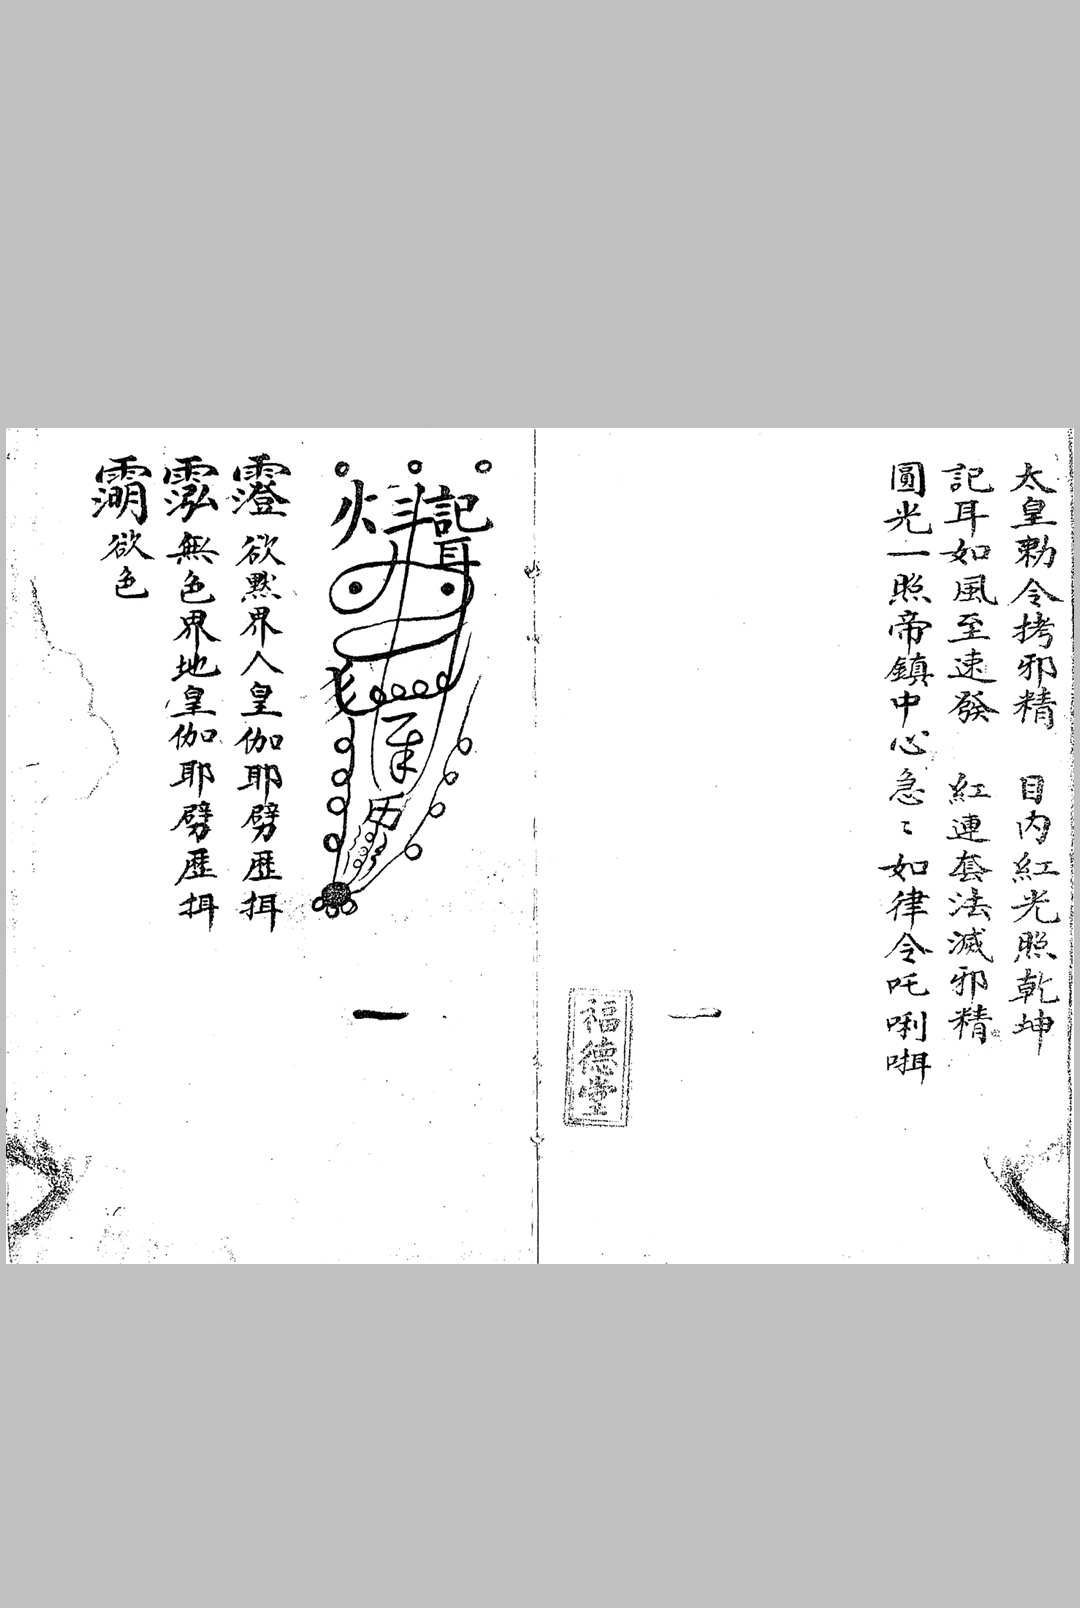 太皇勅令拷邪精　目内紅光照乾坤
記耳如風至速發　紅連套法滅邪精
圓光一照帝鎮中心急〻如律令吒唎㖇
一
福德堂
記
斗
火
耳
一
欲黙界人皇伽耶劈歷挕
無色界地皇伽耶劈歷挕
欲色